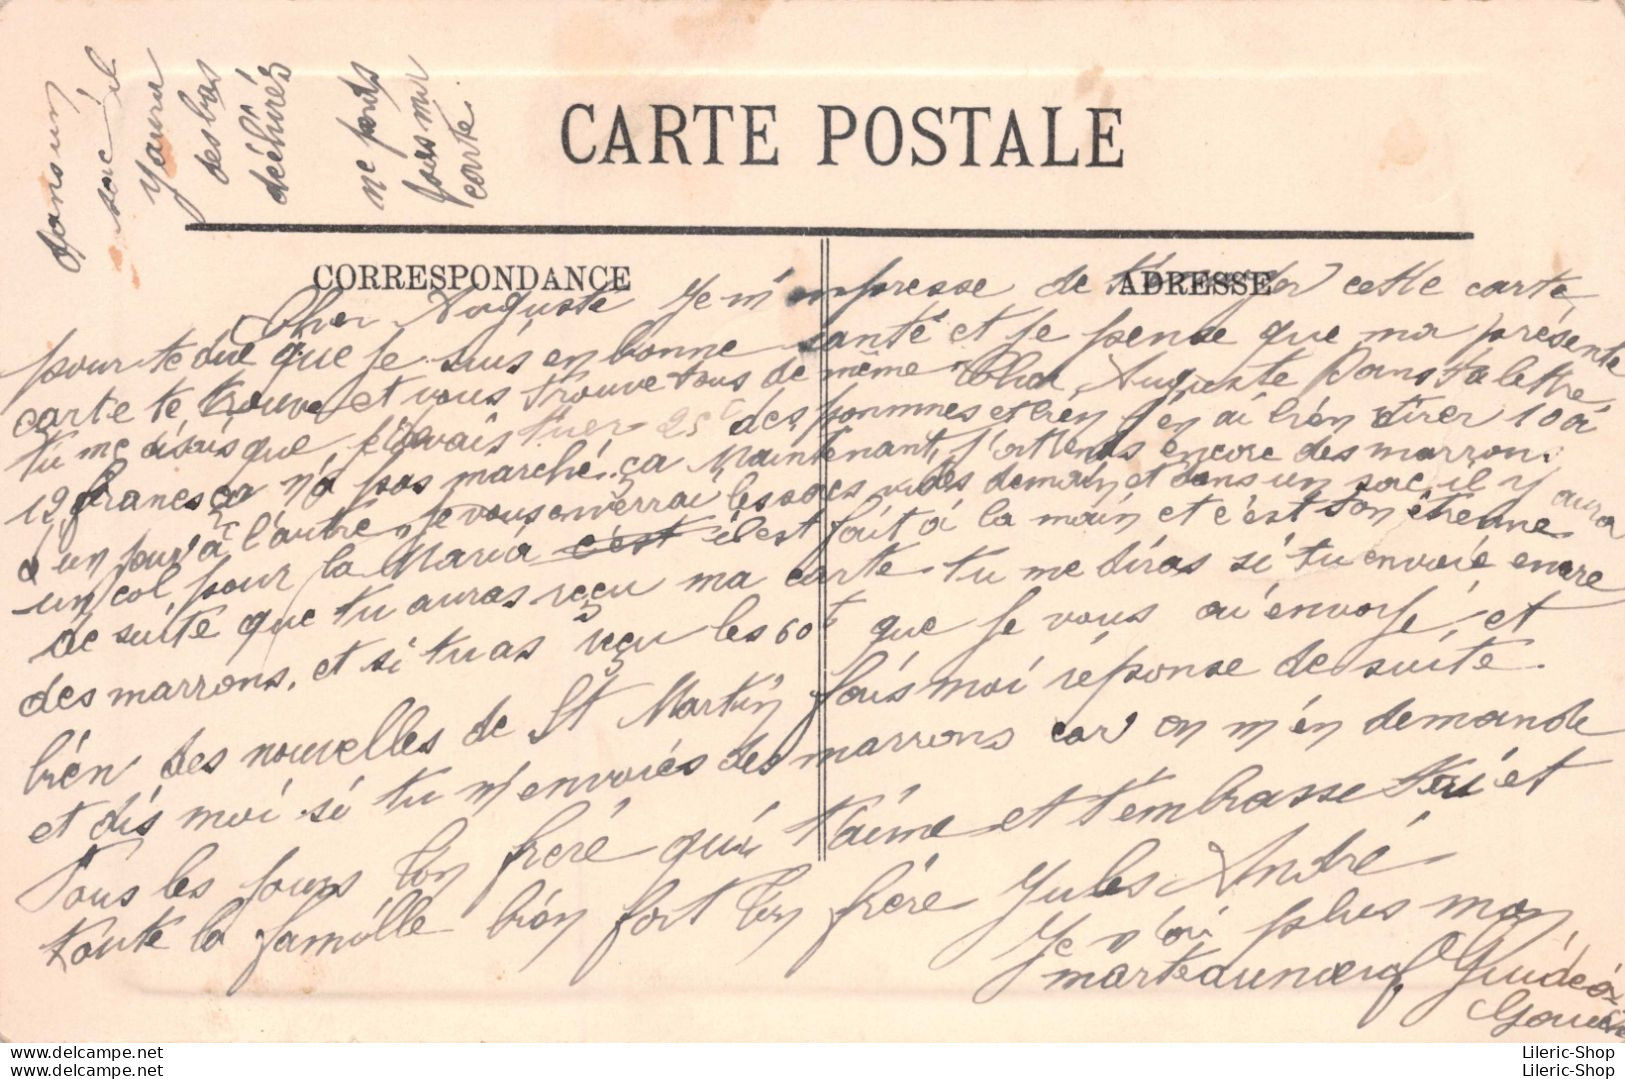 dans un
sac il
y aura
des bas
déchirés
ne perds
pas ma
carte.
CARTE POSTALE
CORRESPONDANCE
ADRESSE
Cher Auguste Je m'empresse de cette carte
pour te dire que je suis en bonne santé et je pense que ma présente
carte te trouve et vous trouve tous de même Cher Auguste Dans ta lettre
tu me disais que j'avais tuer 25c des pommes et bien j'en ai bien tirer 10 à
12 francs ça n'a pas marché.. ça Maintenant, j'attends encore des marrons
d'un jour à l'autre je vous enverrai les sacs vides demain et dans un sac, il y aura
un col pour la Maria c'est il est fait à la main et c'est son étrenne
de suite que tu auras reçu ma carte. tu me diras si tu envoie encore
des marrons, et si tu as reçu les 60f que je vous ai envoyé et
bien des nouvelles de St Martin fais moi réponse de suite.
et dis moi si tu m'envoies des marrons car on m'en demande
Tous les jours ton frère qui t'aime et t'embrasse toi et
toute la famille bien fort ton frère Jules André
Je n'ai plus mon
marteau neuf,
Lileric-Shop
Lileric-Shop
Lileric-Shop
Lileric-Shop